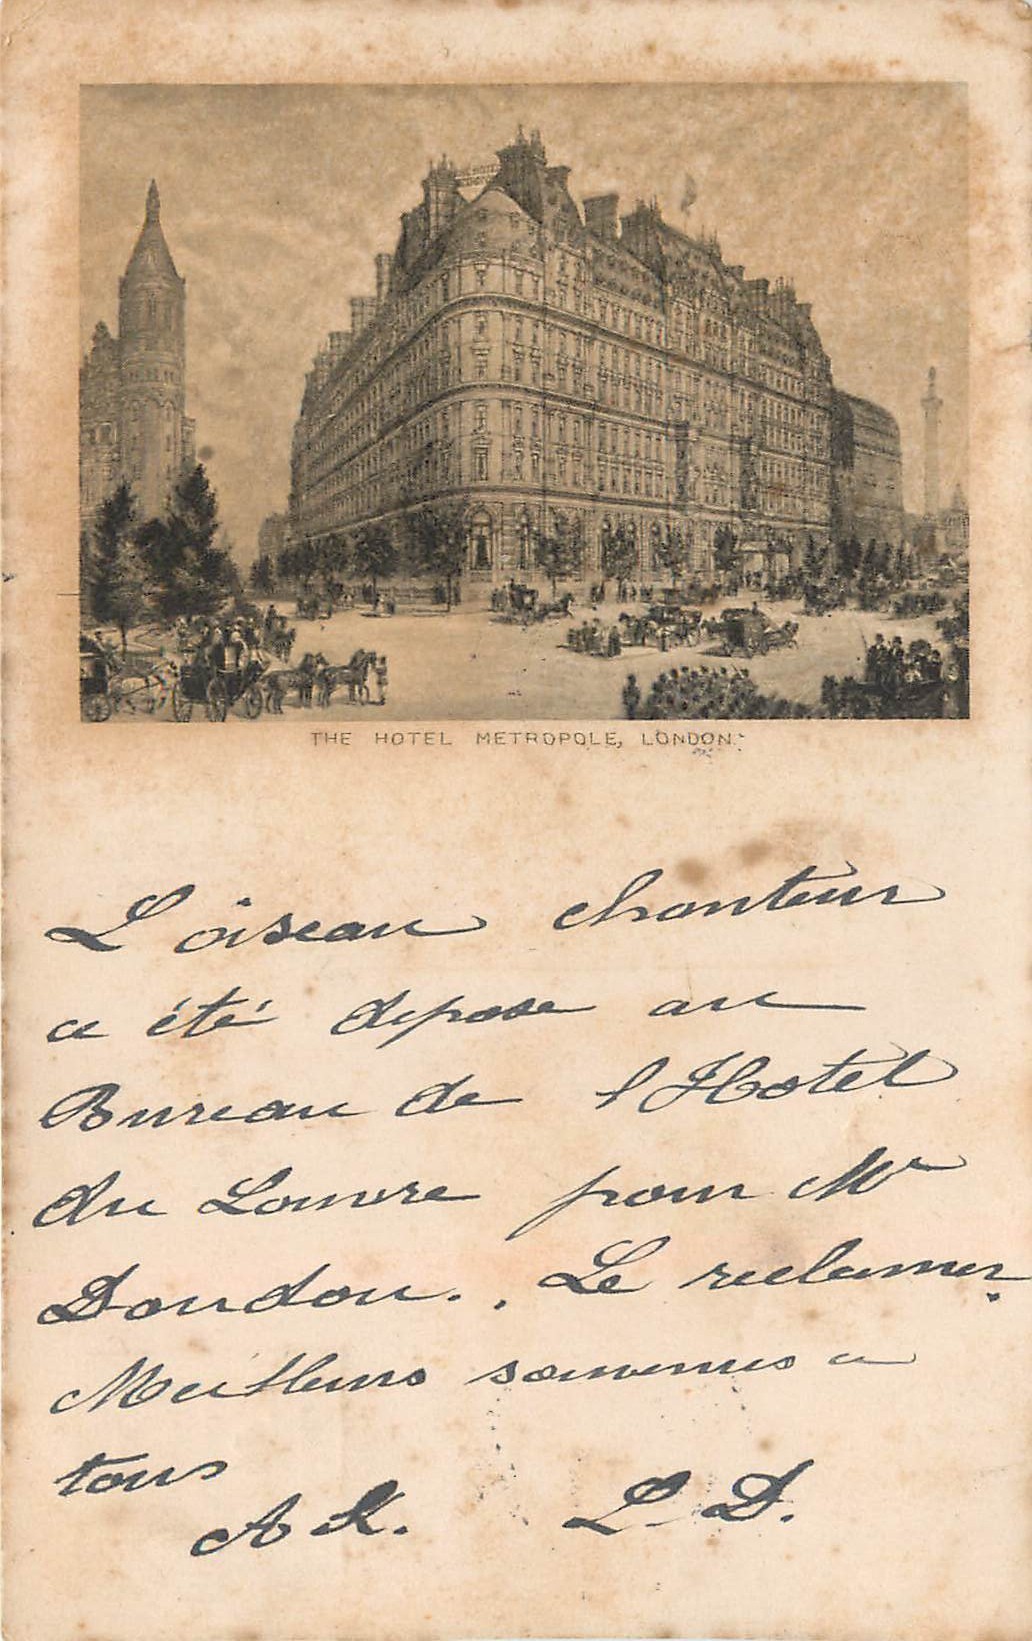 THE HOTEL METROPOLE, LONDON.
L'oiseau chanteur
a été depose au
Bureau de l'Hotel
du Louvre pour Mr
Doudou.. Le reclamer.
Meilleurs souvenirs a
tous
A K. L. D.